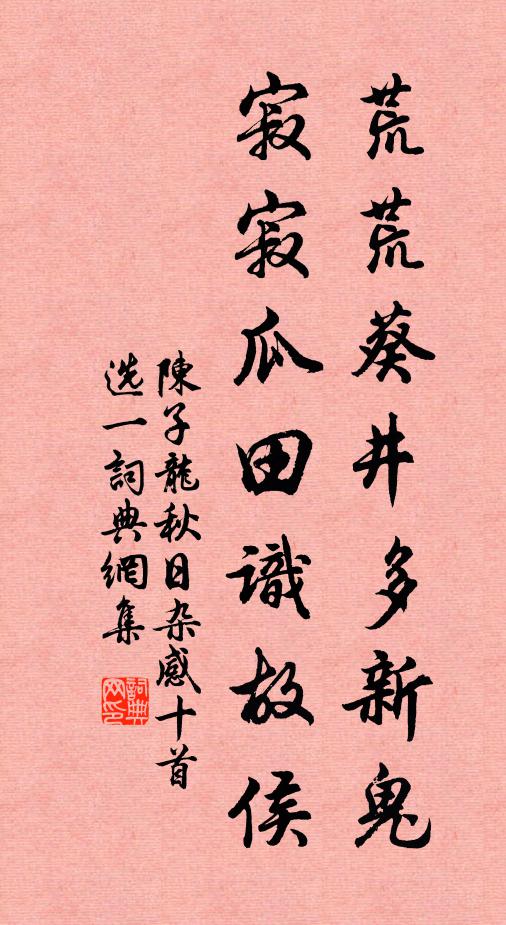 荒荒葵井多新鬼
寂寂瓜田識故侯
陳子龍秋日杂感十首
选一詞典網集
詞典网印